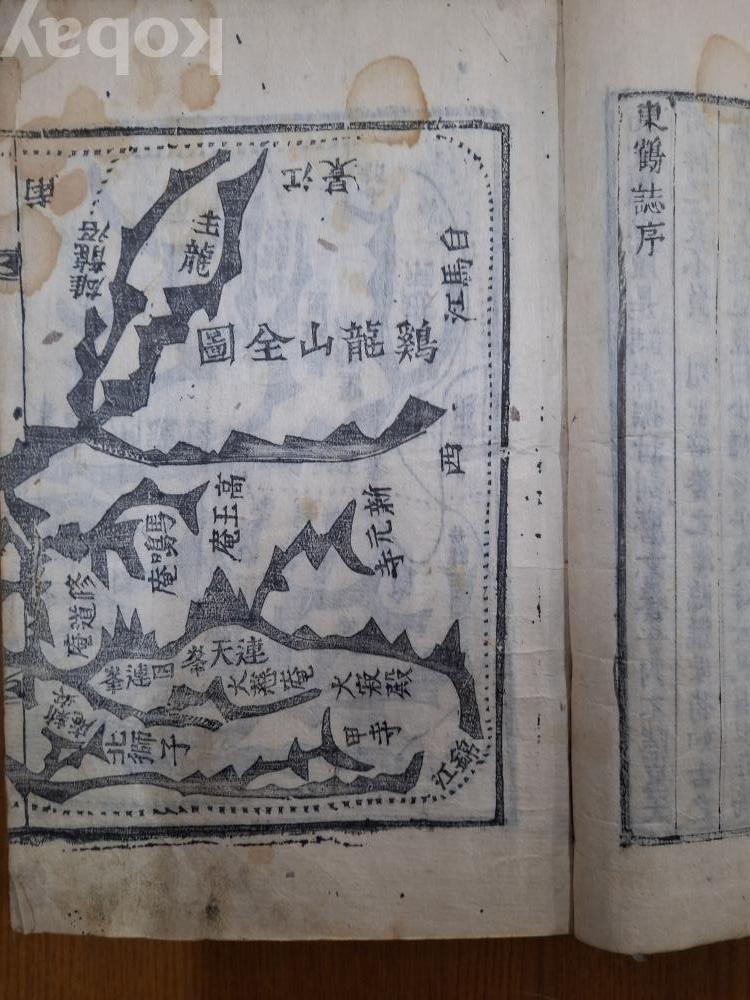 kobay
東鶴誌序
鷄龍山全圖
白馬江
江景
南
主龍
雄龍㳍
西
新元寺
高王庵
馬鳴庵
修道庵
連天峯
四連峯
大慈庵
大寂殿
甲寺
北獅子
錦江